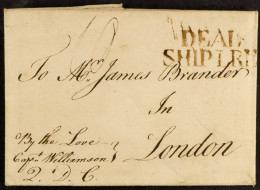 DEAL
SHIP LRE
To Mr. James Brander
In
London
By the Love
Capn. Williamson
Q. D. C.